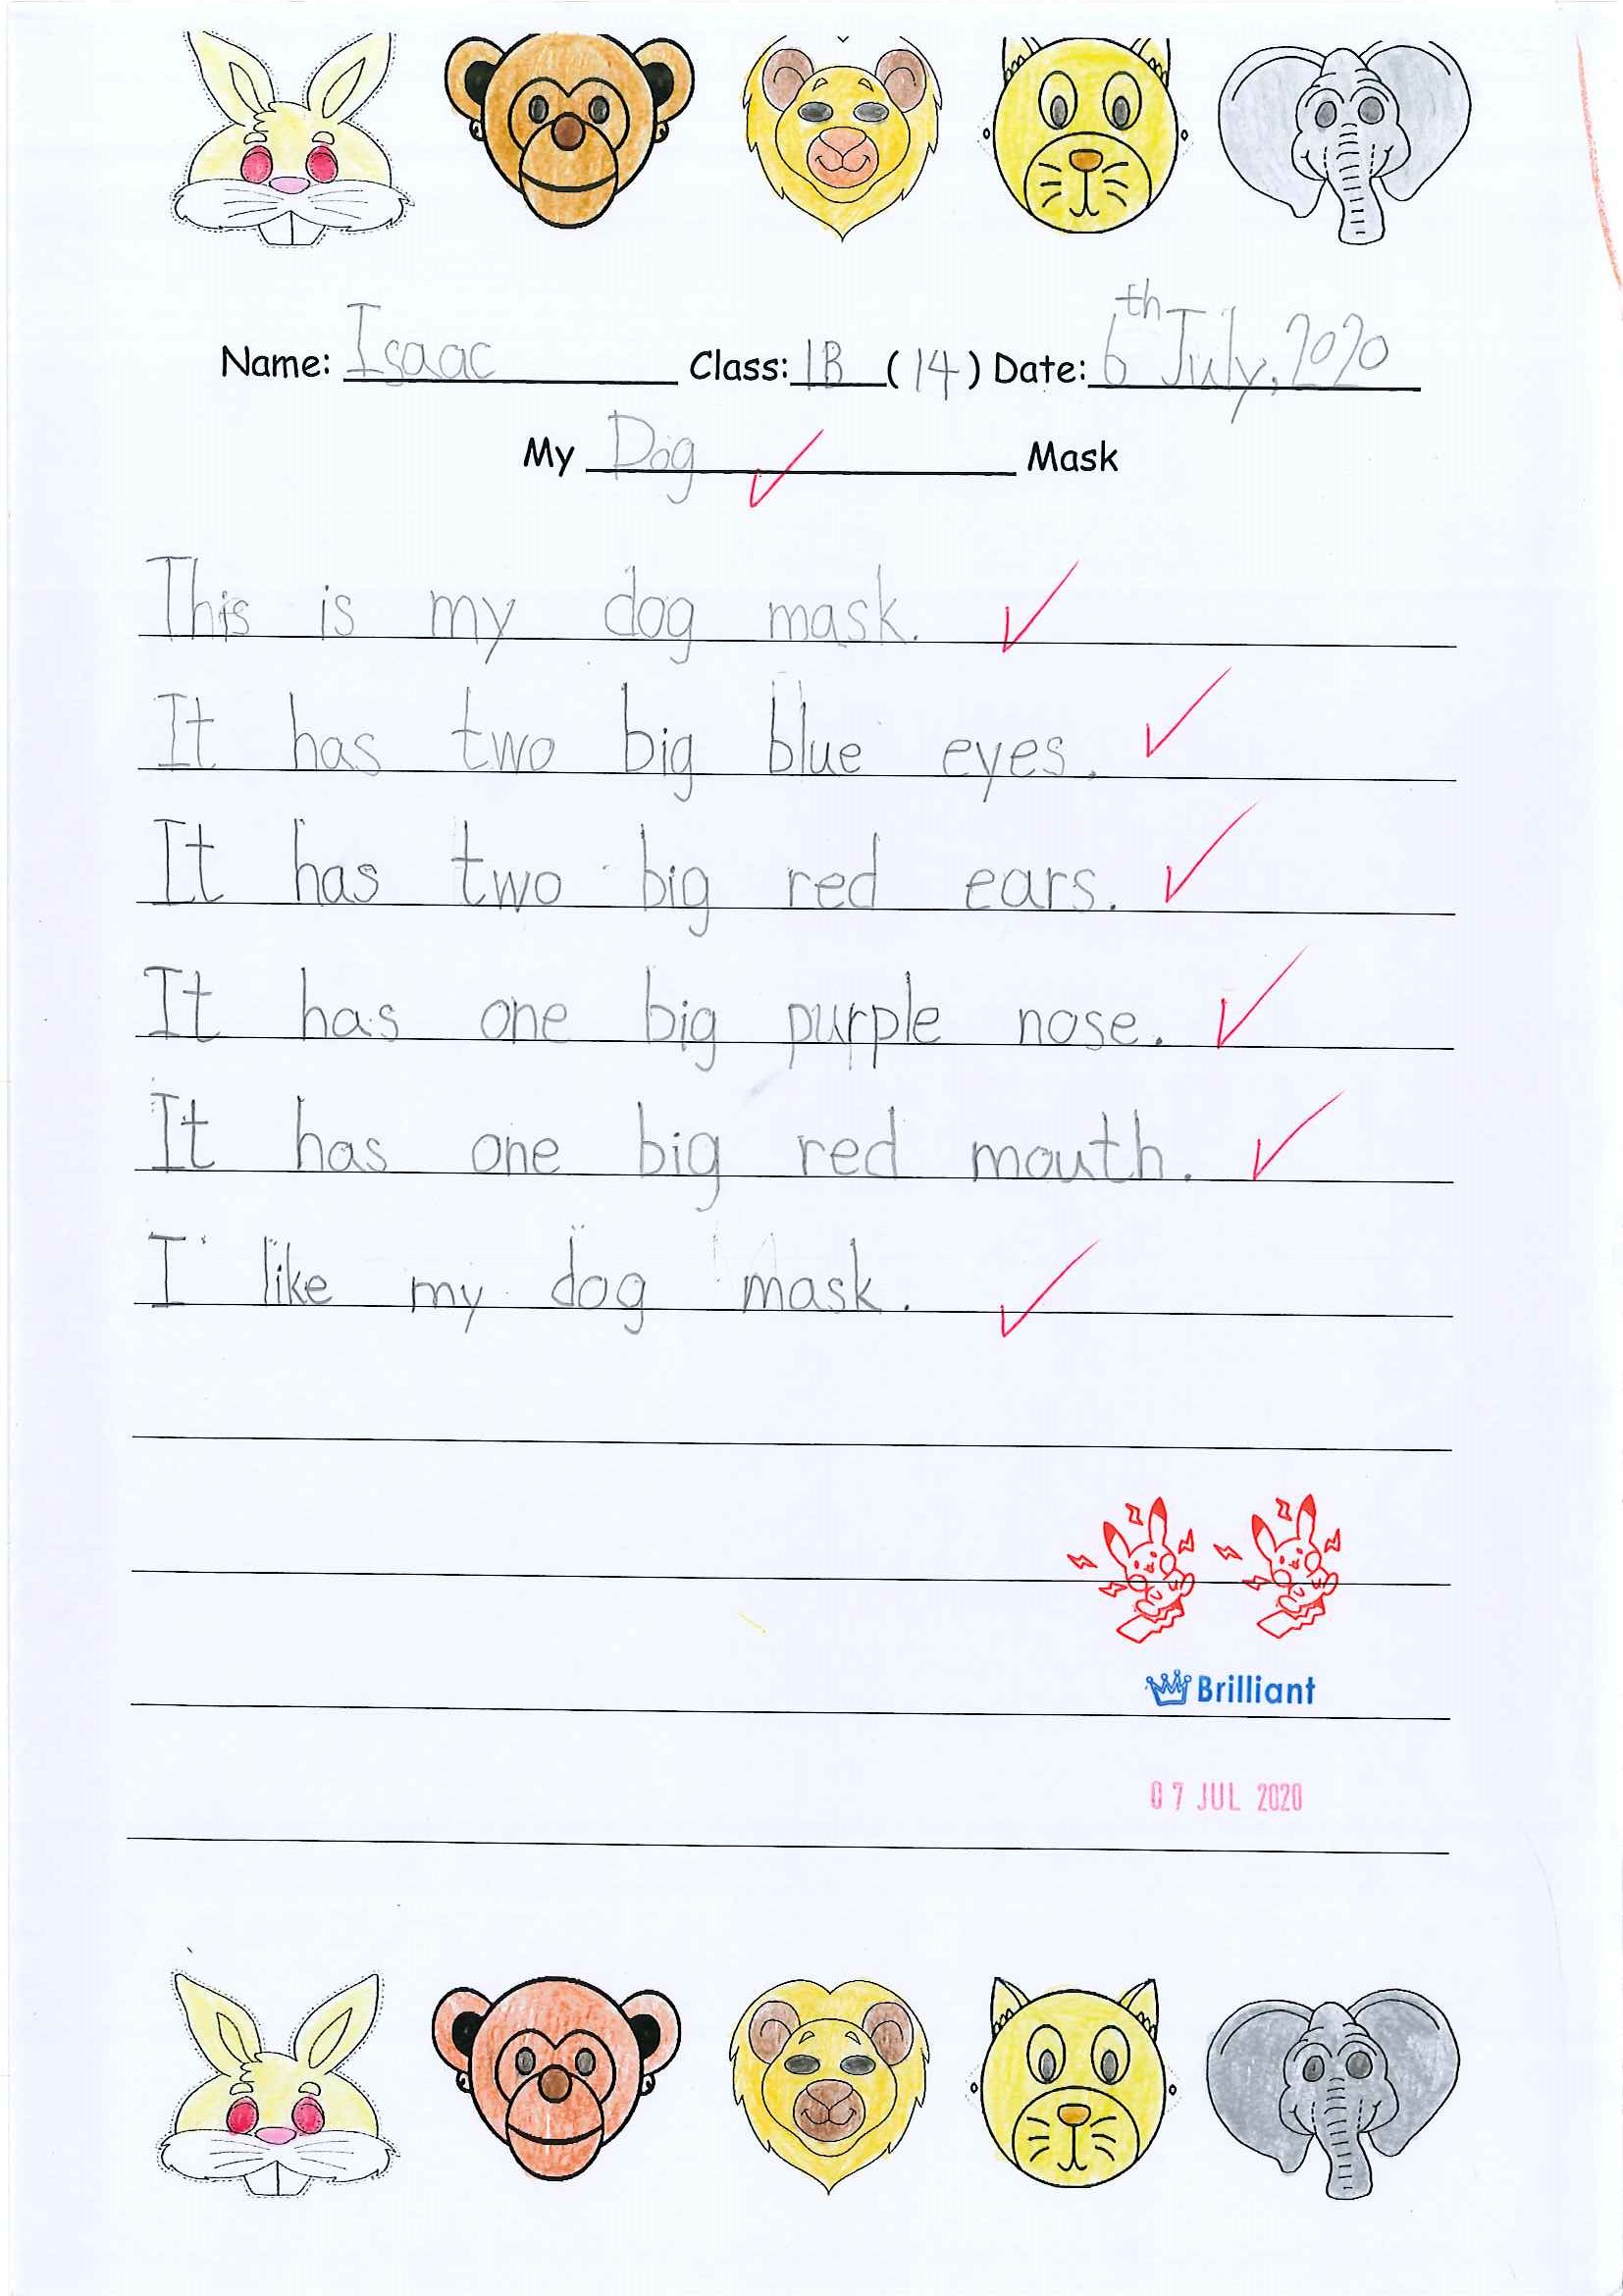 Name: Isaac Class: 1B (14) Date: 6th July, 2020
My Dog Mask
This is my dog mask.
It has two big blue eyes.
It has two big red ears.
It has one big purple nose.
It has one big red mouth.
I like my dog mask.
Brilliant
07 JUL 2020